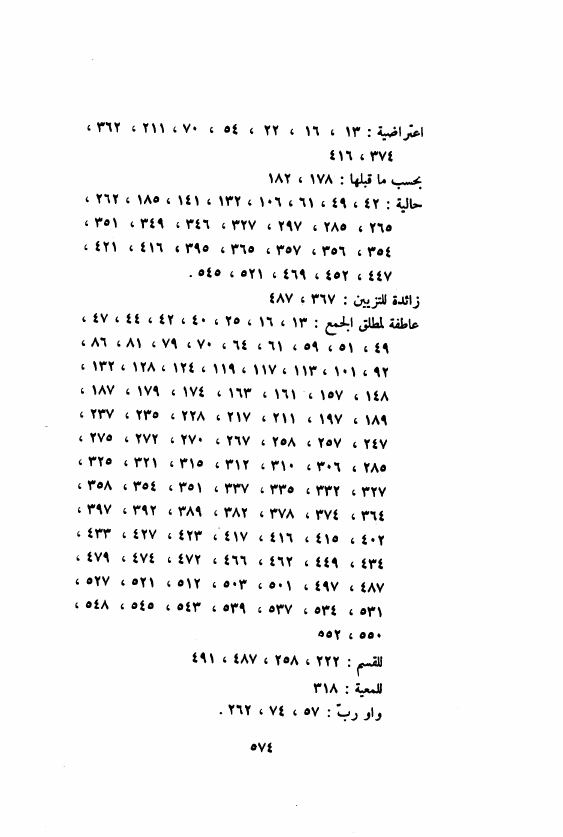 اعتراضية : ١٣ ، ١٦ ، ٢٢ ، ٥٤ ، ٧٠ ، ٢١١ ، ٣٦٢ ،
٣٧٤ ، ٤١٦
بحسب ما قبلها : ١٧٨ ، ١٨٢
حالية : ٤٢ ، ٤٩ ، ٦١ ، ١٠٦ ، ١٣٢ ، ١٤١ ، ١٨٥ ، ٢٦٢ ،
٢٦٥ ، ٢٨٥ ، ٢٩٧ ، ٣٢٧ ، ٣٤٦ ، ٣٤٩ ، ٣٥١ ،
٣٥٤ ، ٣٥٦ ، ٣٥٧ ، ٣٦٥ ، ٣٩٥ ، ٤١٦ ، ٤٢١ ،
٤٤٧ ، ٤٥٢ ، ٤٦٩ ، ٥٢١ ، ٥٤٥ .
زائدة للتزيين : ٣٦٧ ، ٤٨٧
عاطفة لمطلق الجمع : ١٣ ، ١٦ ، ٢٥ ، ٤٠ ، ٤٢ ، ٤٤ ، ٤٧ ،
٤٩ ، ٥١ ، ٥٩ ، ٦١ ، ٦٤ ، ٧٠ ، ٧٩ ، ٨١ ، ٨٦ ،
٩٢ ، ١٠١ ، ١١٣ ، ١١٧ ، ١١٩ ، ١٢٤ ، ١٢٨ ، ١٣٢ ،
١٤٨ ، ١٥٧ ، ١٦١ ، ١٦٣ ، ١٧٤ ، ١٧٩ ، ١٨٧ ،
١٨٩ ، ١٩٧ ، ٢١١ ، ٢١٧ ، ٢٢٨ ، ٢٣٥ ، ٢٣٧ ،
٢٤٧ ، ٢٥٧ ، ٢٥٨ ، ٢٦٧ ، ٢٧٠ ، ٢٧٢ ، ٢٧٥ ،
٢٨٥ ، ٣٠٦ ، ٣١٠ ، ٣١٢ ، ٣١٥ ، ٣٢١ ، ٣٢٥ ،
٣٢٧ ، ٣٣٢ ، ٣٣٥ ، ٣٣٧ ، ٣٥١ ، ٣٥٤ ، ٣٥٨ ،
٣٦٤ ، ٣٧٤ ، ٣٧٨ ، ٣٨٢ ، ٣٨٩ ، ٣٩٢ ، ٣٩٧ ،
٤٠٢ ، ٤١٥ ، ٤١٦ ، ٤١٧ ، ٤٢٣ ، ٤٢٧ ، ٤٣٣ ،
٤٣٤ ، ٤٤٩ ، ٤٦٢ ، ٤٦٦ ، ٤٧٢ ، ٤٧٤ ، ٤٧٩ ،
٤٨٧ ، ٤٩٧ ، ٥٠١ ، ٥٠٣ ، ٥١٢ ، ٥٢١ ، ٥٢٧ ،
٥٣١ ، ٥٣٤ ، ٥٣٧ ، ٥٣٩ ، ٥٤٣ ، ٥٤٥ ، ٥٤٨ ،
٥٥٠ ، ٥٥٢
للقسم : ٢٢٢ ، ٢٥٨ ، ٤٨٧ ، ٤٩١
للمعية : ٣١٨
واو ربّ : ٥٧ ، ٧٤ ، ٢٦٢ .
٥٧٤